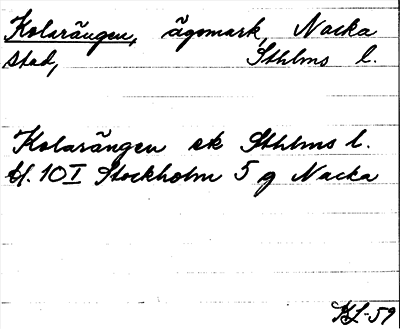 Kolarängen, ägomark, Nacka
stad, Sthlms l.
Kolarängen ek Sthlms l.
bl. 10I Stockholm 5 g Nacka
KL-59